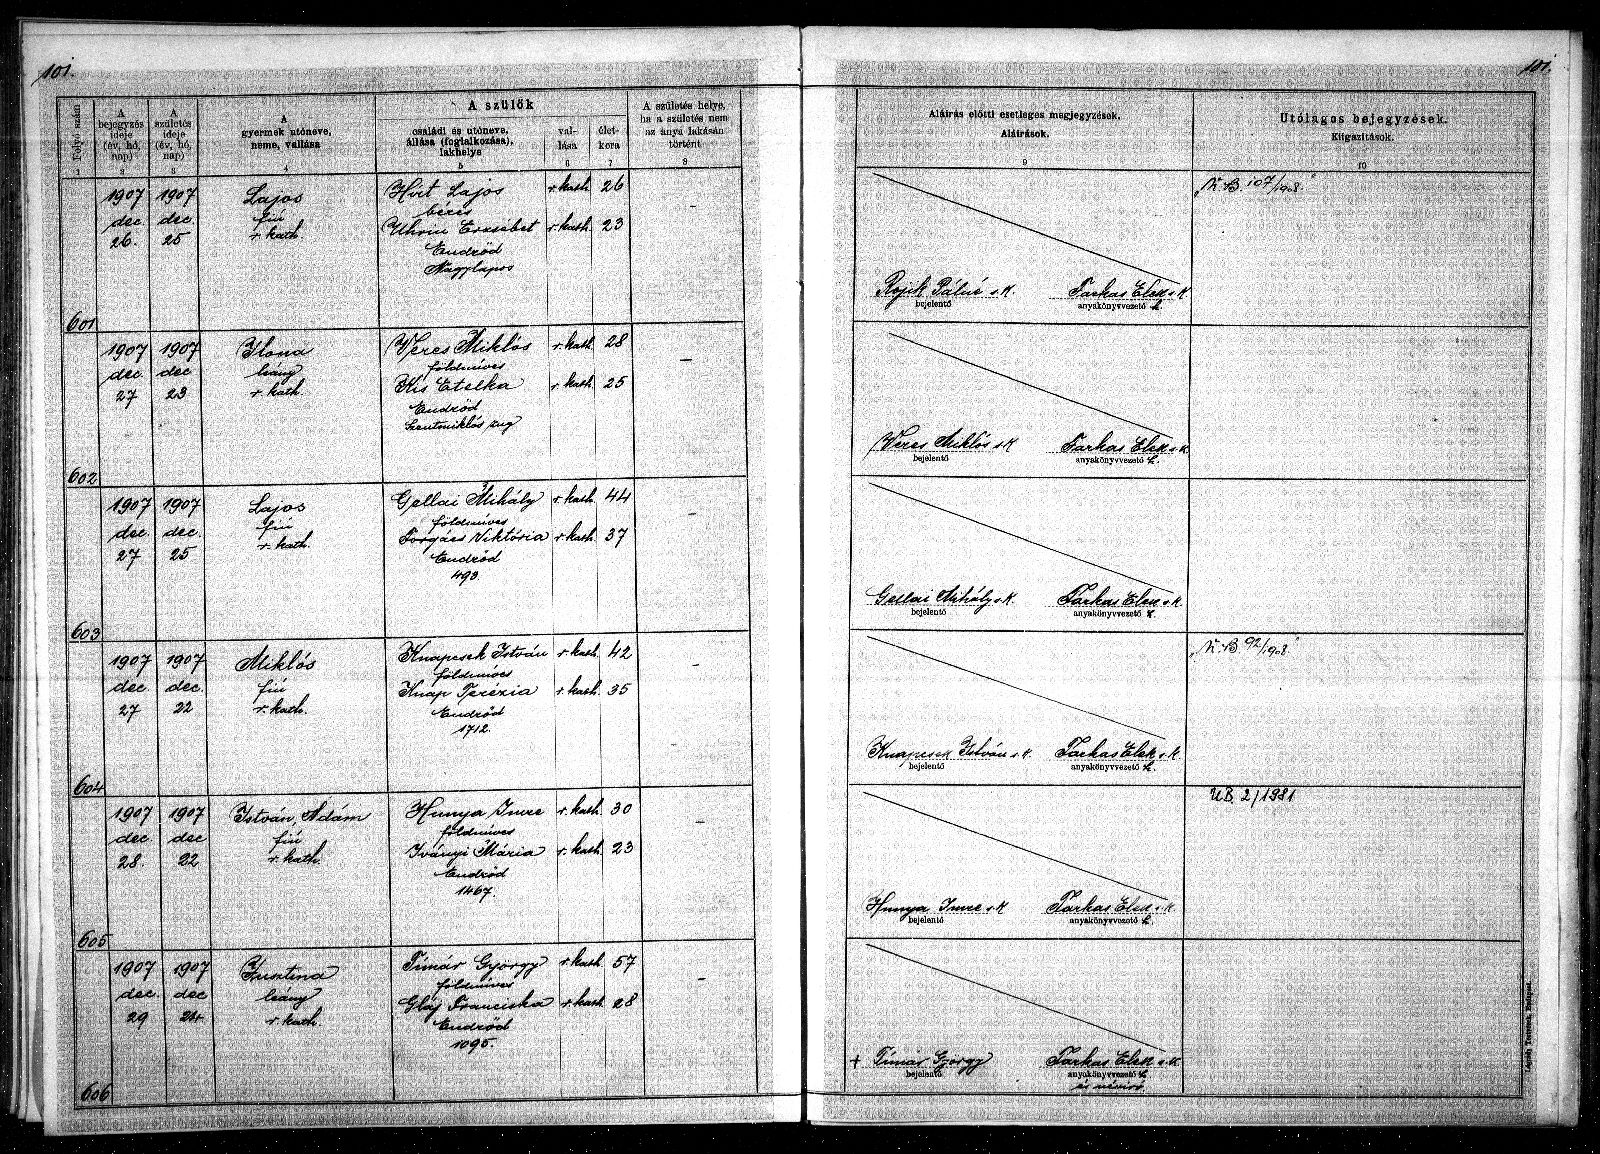 101.
101.
Folyó szám
A bejegyzés ideje (év, hó, nap)
A születés ideje (év, hó, nap)
A gyermek utóneve, neme, vallása
A szülők
családi és utóneve, állása (foglalkozása), lakhelye
vallása
életkora
A születés helye, ha a születés nem az anya lakásán történt
Aláírás előtti esetleges megjegyzések.
Aláírások.
Utólagos bejegyzések.
Kiigazítások.
1 2 3 4 5 6 7 8 9 10
1907 1907 Lajos Hirt Lajos r. kath. 26 –
dec. dec. fiú béres
26. 25 r. kath. Uhrin Erzsébet r. kath. 23
Endrőd
Nagylapos
601
Rojik Pálné s. k. Farkas Elek s. k.
bejelentő anyakönyvvezető h.
N. B. 107/1908
1907 1907 Ilona Veres Miklós r. kath. 28 –
dec. dec leány földmíves
27 23 r. kath. Kis Etelka r. kath. 25
Endrőd
Szentmiklós zug
602
Veres Miklós s. k. Farkas Elek s. k.
bejelentő anyakönyvvezető h.
1907 1907 Lajos Gellai Mihály r. kath. 44 –
dec. dec. fiú földmíves
27 25 r. kath. Forgács Viktória r. kath. 37
Endrőd
493.
603
Gellai Mihály s. k. Farkas Elek s. k.
bejelentő anyakönyvvezető h.
1907 1907 Miklós Knapcsek István r. kath. 42 –
dec dec. fiú földmíves
27 22 r. kath. Knap Terézia r. kath. 35
Endrőd
1712.
604
Knapcsek István s. k. Farkas Elek s. k.
bejelentő anyakönyvvezető h.
N. B. 92/1908.
1907 1907 István, Ádám Hunya Imre r. kath. 30 –
dec dec fiú földmíves
28. 22 r. kath. Iványi Mária r. kath. 23
Endrőd
1467.
605
Hunya Imre s. k. Farkas Elek s. k.
bejelentő anyakönyvvezető h.
UB. 2/1981
1907 1907 Jusztina Tímár György r. kath. 57 –
dec. dec leány földmíves
29 24 r. kath. Gláj Franciska r. kath. 28
Endrőd
1095.
606
+ Tímár György Farkas Elek s. k.
bejelentő anyakönyvvezető h.
és névíró